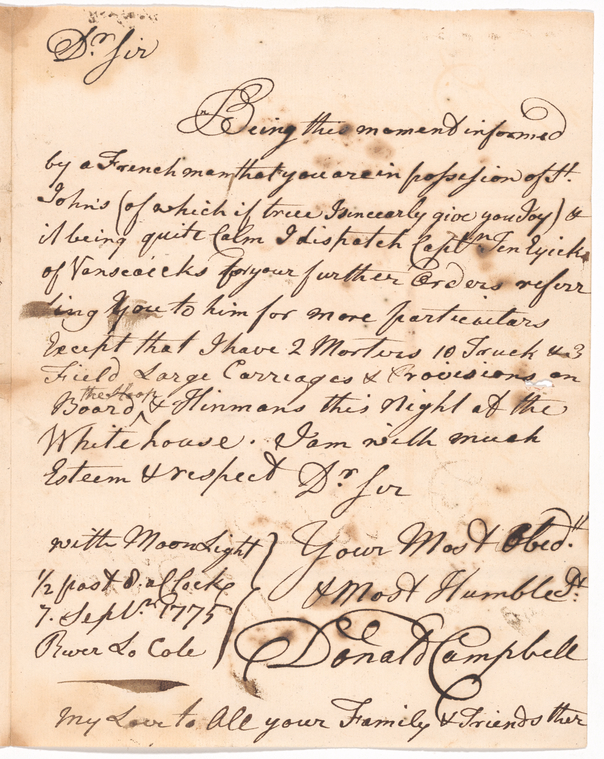 Dr Sir
Being this moment informed
by a French man that you are in possesion of St.
John's (of which if true I sincearly give you Joy) &
it being quite Calm I dispatch Captn Ten Eyick
of Vanscaicks for your further Orders referr
ing You to him for more particulars
Except that I have 2 Morters 10 Truck & 3
Field Large Carriages & Provisions on
Board the Sloop & Hinmans this Night at the
White house. I am with much
Esteem & respect Dr Sir
with Moon Light
Your Most Obedt
1/2 past 8. a Clock
& Most Humble St.
7. Septr 1775
River La Cole
Donald Campbell
My Love to All your Family & Friends ther